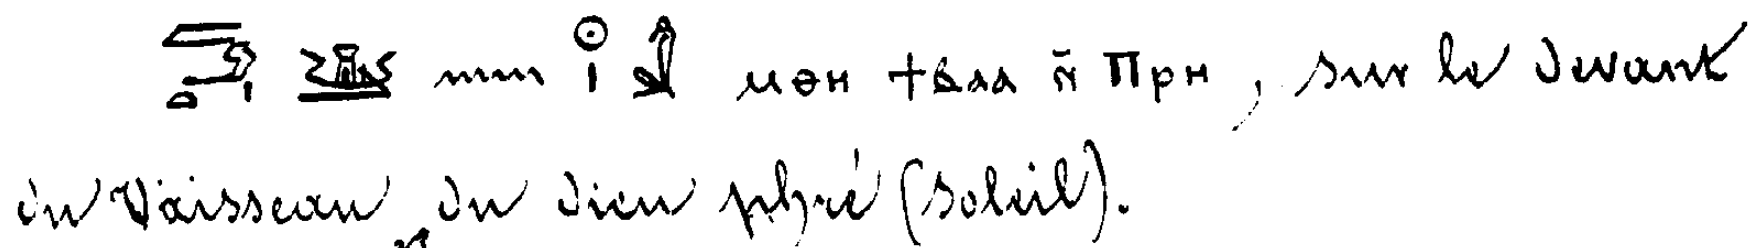 ⲙⲑⲏ ϯⲃⲁⲁ ⲛ̄ Ⲡⲣⲏ, sur le devant
du Vaisseau du dieu phré (soleil).